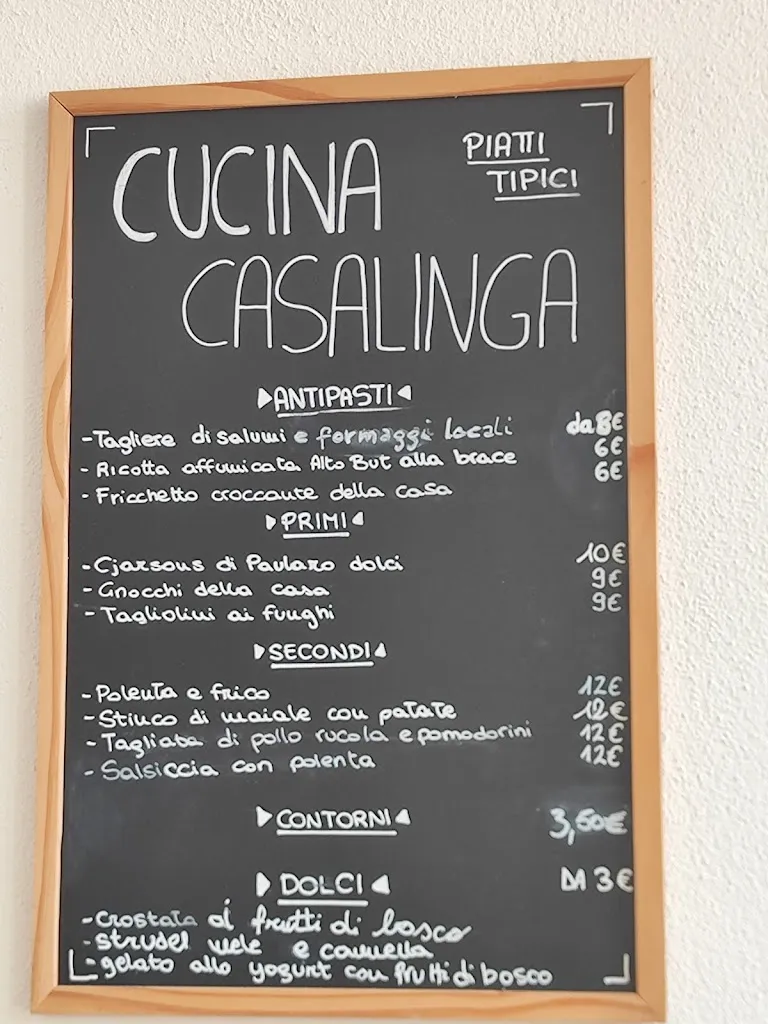 CUCINA
PIATTI
TIPICI
CASALINGA
ANTIPASTI
-Tagliere di salumi e formaggi locali da 8€
- Ricotta affumicata Alto But alla brace 6€
- Fricchetto croccante della casa 6€
PRIMI
-Cjarsous di Paularo dolci 10€
- Gnocchi della casa 9€
- Tagliolini ai funghi 9€
SECONDI
-Polenta e frico 12€
-Stinco di maiale con patate 12€
- Tagliata di pollo rucola e pomodorini 12€
- Salsiccia con polenta 12€
CONTORNI 3,50€
DOLCI 3€
-crostata ai frutti di bosco
-strudel mele e cannella
-gelato allo yogurt con frutti di bosco